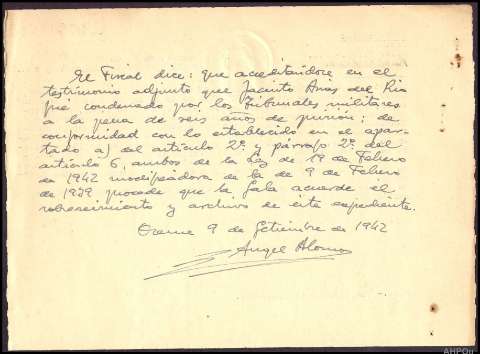 El Fiscal dice: que acreditándose en el
testimonio adjunto que Jacinto Arias del Rio
fué condenado por los Tribunales militares
a la pena de seis años de prisión; de
conformidad con lo establecido en el apar-
tado a) del artículo 2º y párrafo 2º del
artículo 6, ambos de la Ley de 19 de Febrero
de 1942 modificadora de la de 9 de Febrero
de 1939 procede que la Sala acuerde el
sobreseimiento y archivo de este expediente.
Orense 9 de Setiembre de 1942
Angel Alonso
AHPOu